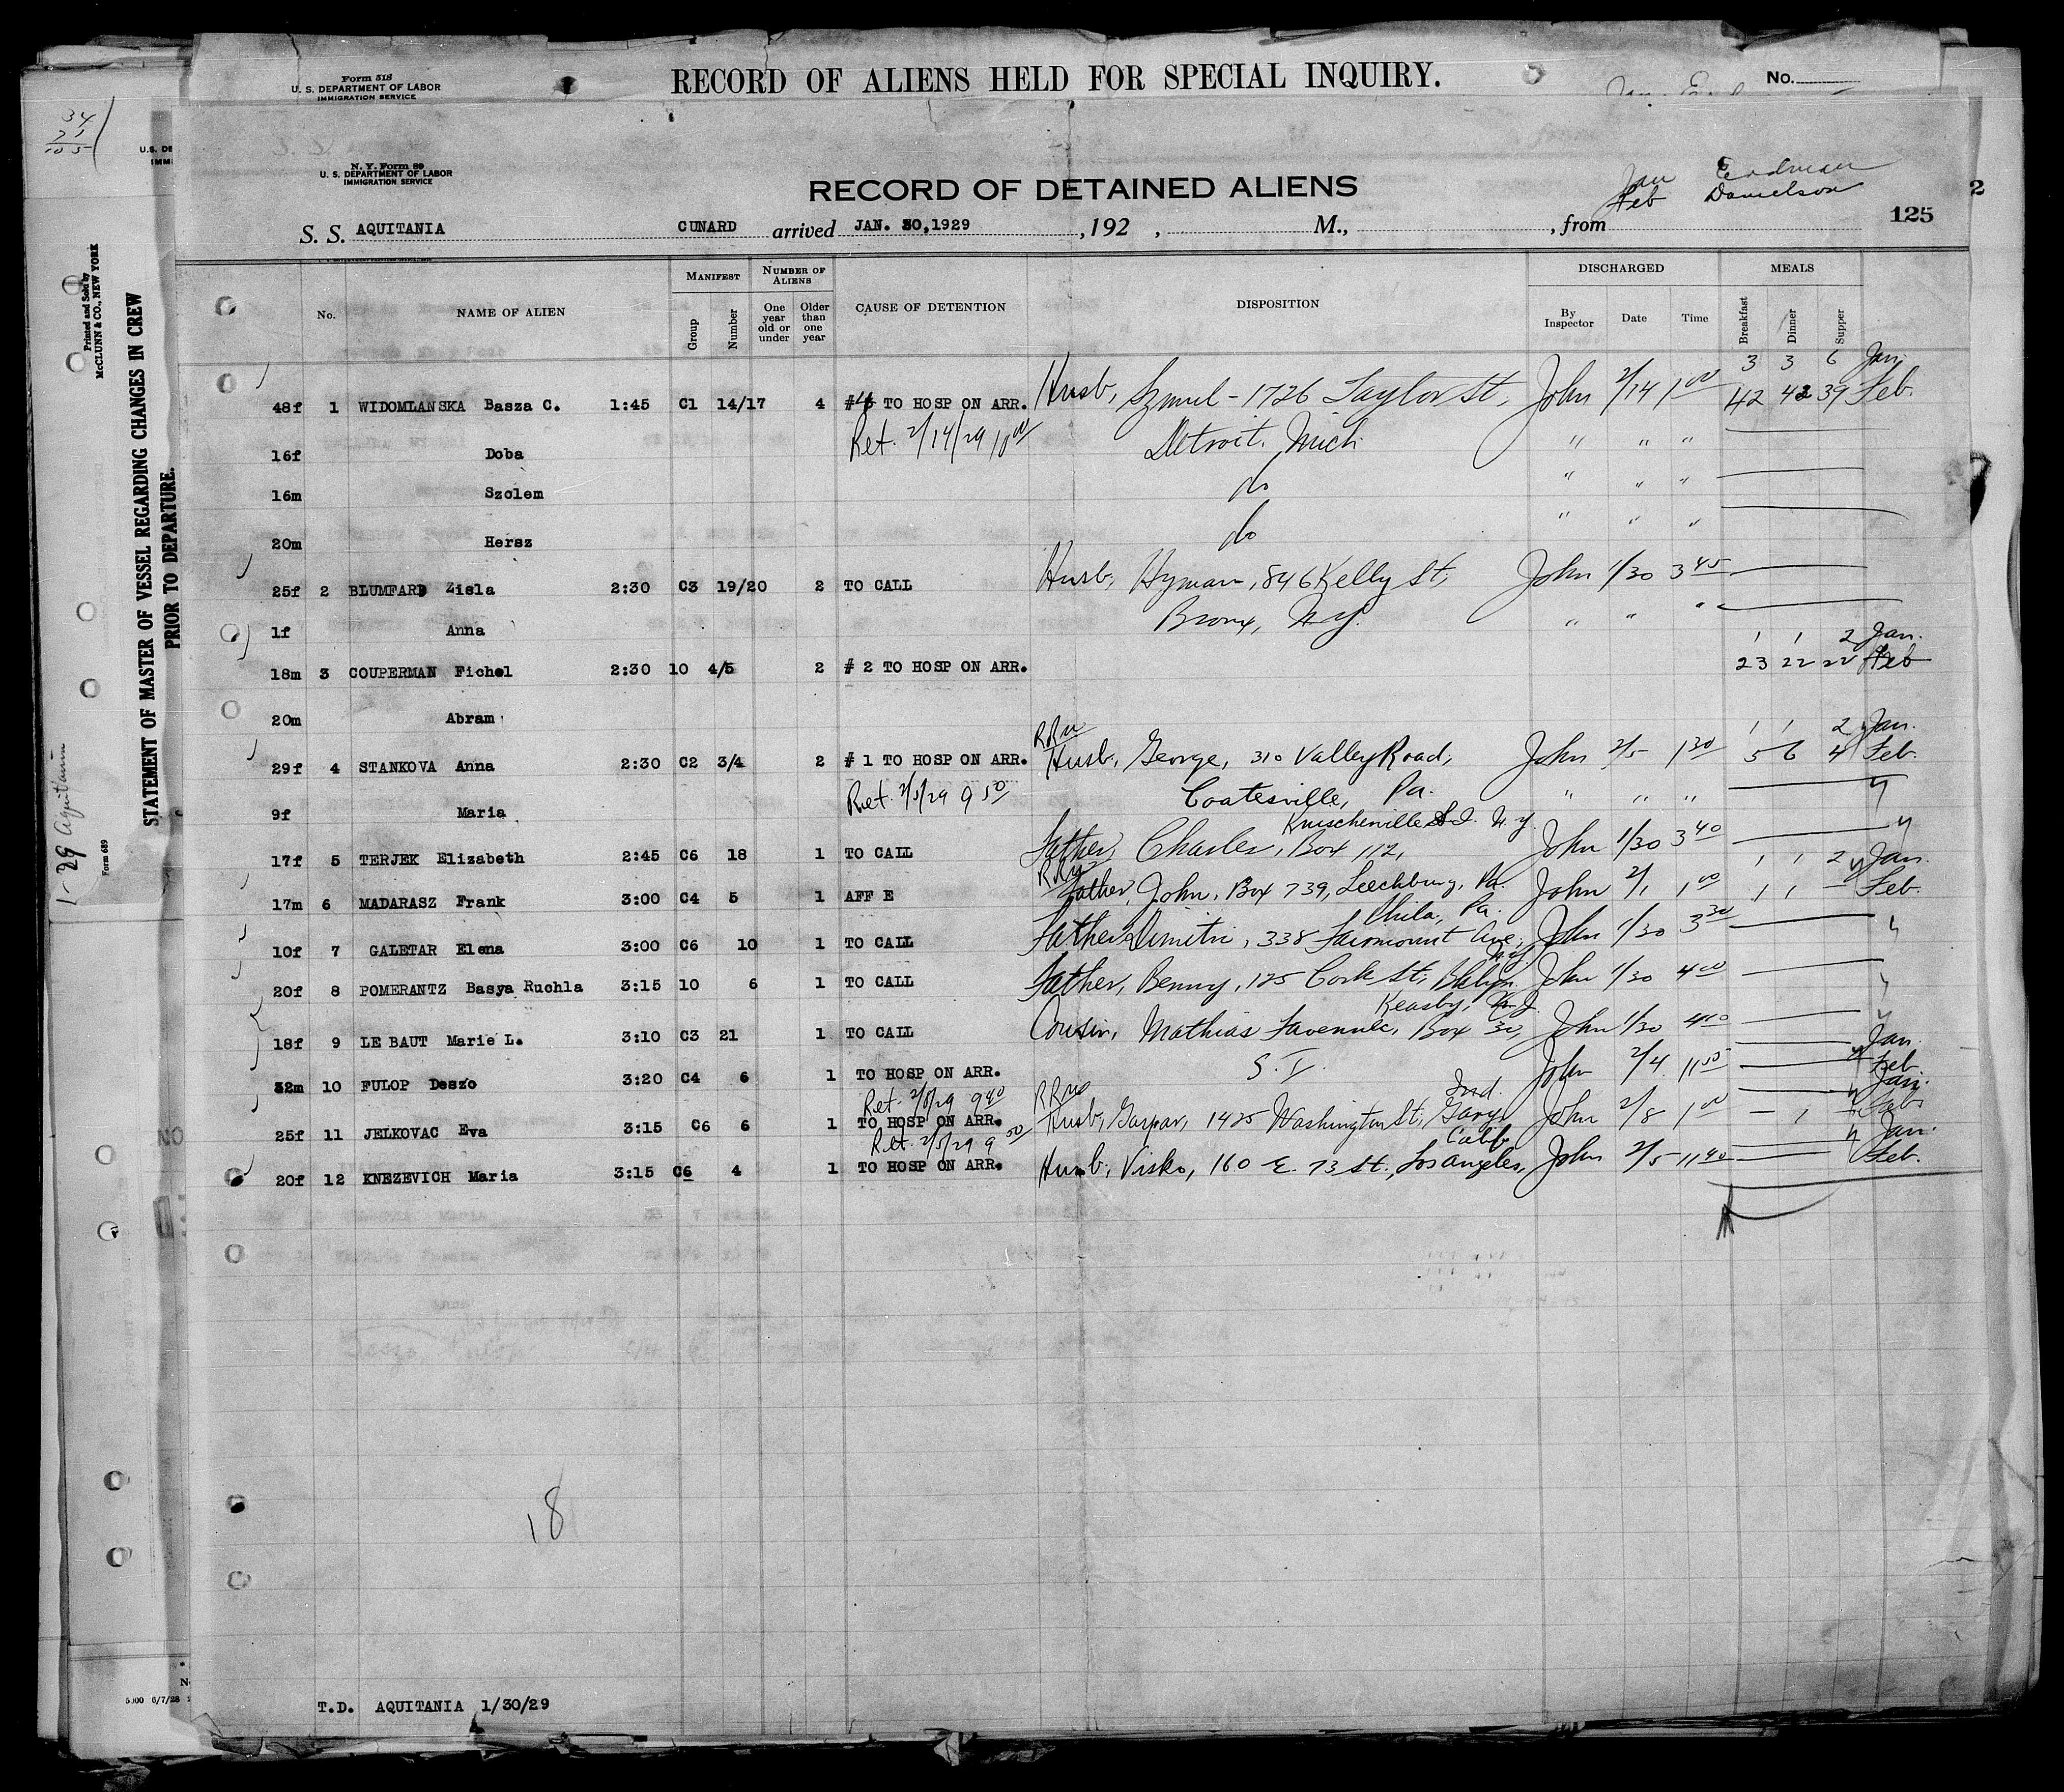 Form 518
U. S. DEPARTMENT OF LABOR
IMMIGRATION SERVICE
RECORD OF ALIENS HELD FOR SPECIAL INQUIRY.
No.
34
71
105
N. Y. Form 89
U. S. DEPARTMENT OF LABOR
IMMIGRATION SERVICE
RECORD OF DETAINED ALIENS
Jan Erdman
Feb Danielson
2
125
S. S. AQUITANIA CUNARD arrived JAN. 30,1929 ,192 , M., , from
Printed and Sold by
McCLUNN & CO., NEW YORK
STATEMENT OF MASTER OF VESSEL REGARDING CHANGES IN CREW
PRIOR TO DEPARTURE.
1-29 Aquitania
Form 689
No. NAME OF ALIEN MANIFEST Group Number NUMBER OF ALIENS One year old or under Older than one year CAUSE OF DETENTION DISPOSITION DISCHARGED By Inspector Date Time MEALS Breakfast Dinner Supper
3 3 6 Jan.
48f 1 WIDOMLANSKA Basza C. 1:45 C1 14/17 4 #4 TO HOSP ON ARR. Husb, Szmul - 1726 Taylor St, John 2/14 1 00 42 42 39 Feb.
Ret. 2/14/29 10 00 Detroit, Mich. " " "
16f Doba
16m Szolem do " " "
20m Hersz do " " "
25f 2 BLUMFARD Zisla 2:30 C3 19/20 2 TO CALL Husb, Hyman, 846 Kelly St, John 1/30 3 45
1f Anna Bronx, N.Y. " " "
1 1 2 Jan.
18m 3 COUPERMAN Fichel 2:30 10 4/5 2 # 2 TO HOSP ON ARR. 23 22 22 Feb
20m Abram
1 1 2 Jan.
29f 4 STANKOVA Anna 2:30 C2 3/4 2 # 1 TO HOSP ON ARR. Husb, George, 310 Valley Road, John 2/5 1 30 5 6 4 Feb.
Ret. 2/5/29 9 50 Coatesville, Pa. " " "
9f Maria
Kruscheville S.I. N.Y.
17f 5 TERJEK Elizabeth 2:45 C6 18 1 TO CALL Father, Charles, Box 112, John 1/30 3 40
1 1 2 Jan.
17m 6 MADARASZ Frank 3:00 C4 5 1 AFF E Father, John, Box 739, Leechburg, Pa. John 2/1 1 00 1 1 — Feb.
Phila, Pa.
10f 7 GALETAR Elena 3:00 C6 10 1 TO CALL Father Dimitri, 338 Fairmount Ave, John 1/30 3 30
N.Y.
20f 8 POMERANTZ Basya Ruchla 3:15 10 6 1 TO CALL Father, Benny, 125 Cook St, Bklyn John 1/30 4 00
Keasby, N.J.
18f 9 LE BAUT Marie L. 3:10 C3 21 1 TO CALL Cousin, Mathias Favennec, Box 30, John 1/30 4 10
Jan.
32m 10 FULOP Deszo 3:20 C4 6 1 TO HOSP ON ARR. S. I. John 2/4 11 55 Feb.
Ret. 2/5/29 9 40 Ind. Jan.
25f 11 JELKOVAC Eva 3:15 C6 6 1 TO HOSP ON ARR. Husb, Gaspar, 1425 Washington St, Gary John 2/8 1 00 — 1 Feb
Ret. 2/5/29 9 50 Calif. Jan.
20f 12 KNEZEVICH Maria 3:15 C6 4 1 TO HOSP ON ARR. Husb, Visko, 160 E. 73 St., Los Angeles, John 2/5 11 40 Feb.
18
5,000 6/7/28
T.D. AQUITANIA 1/30/29